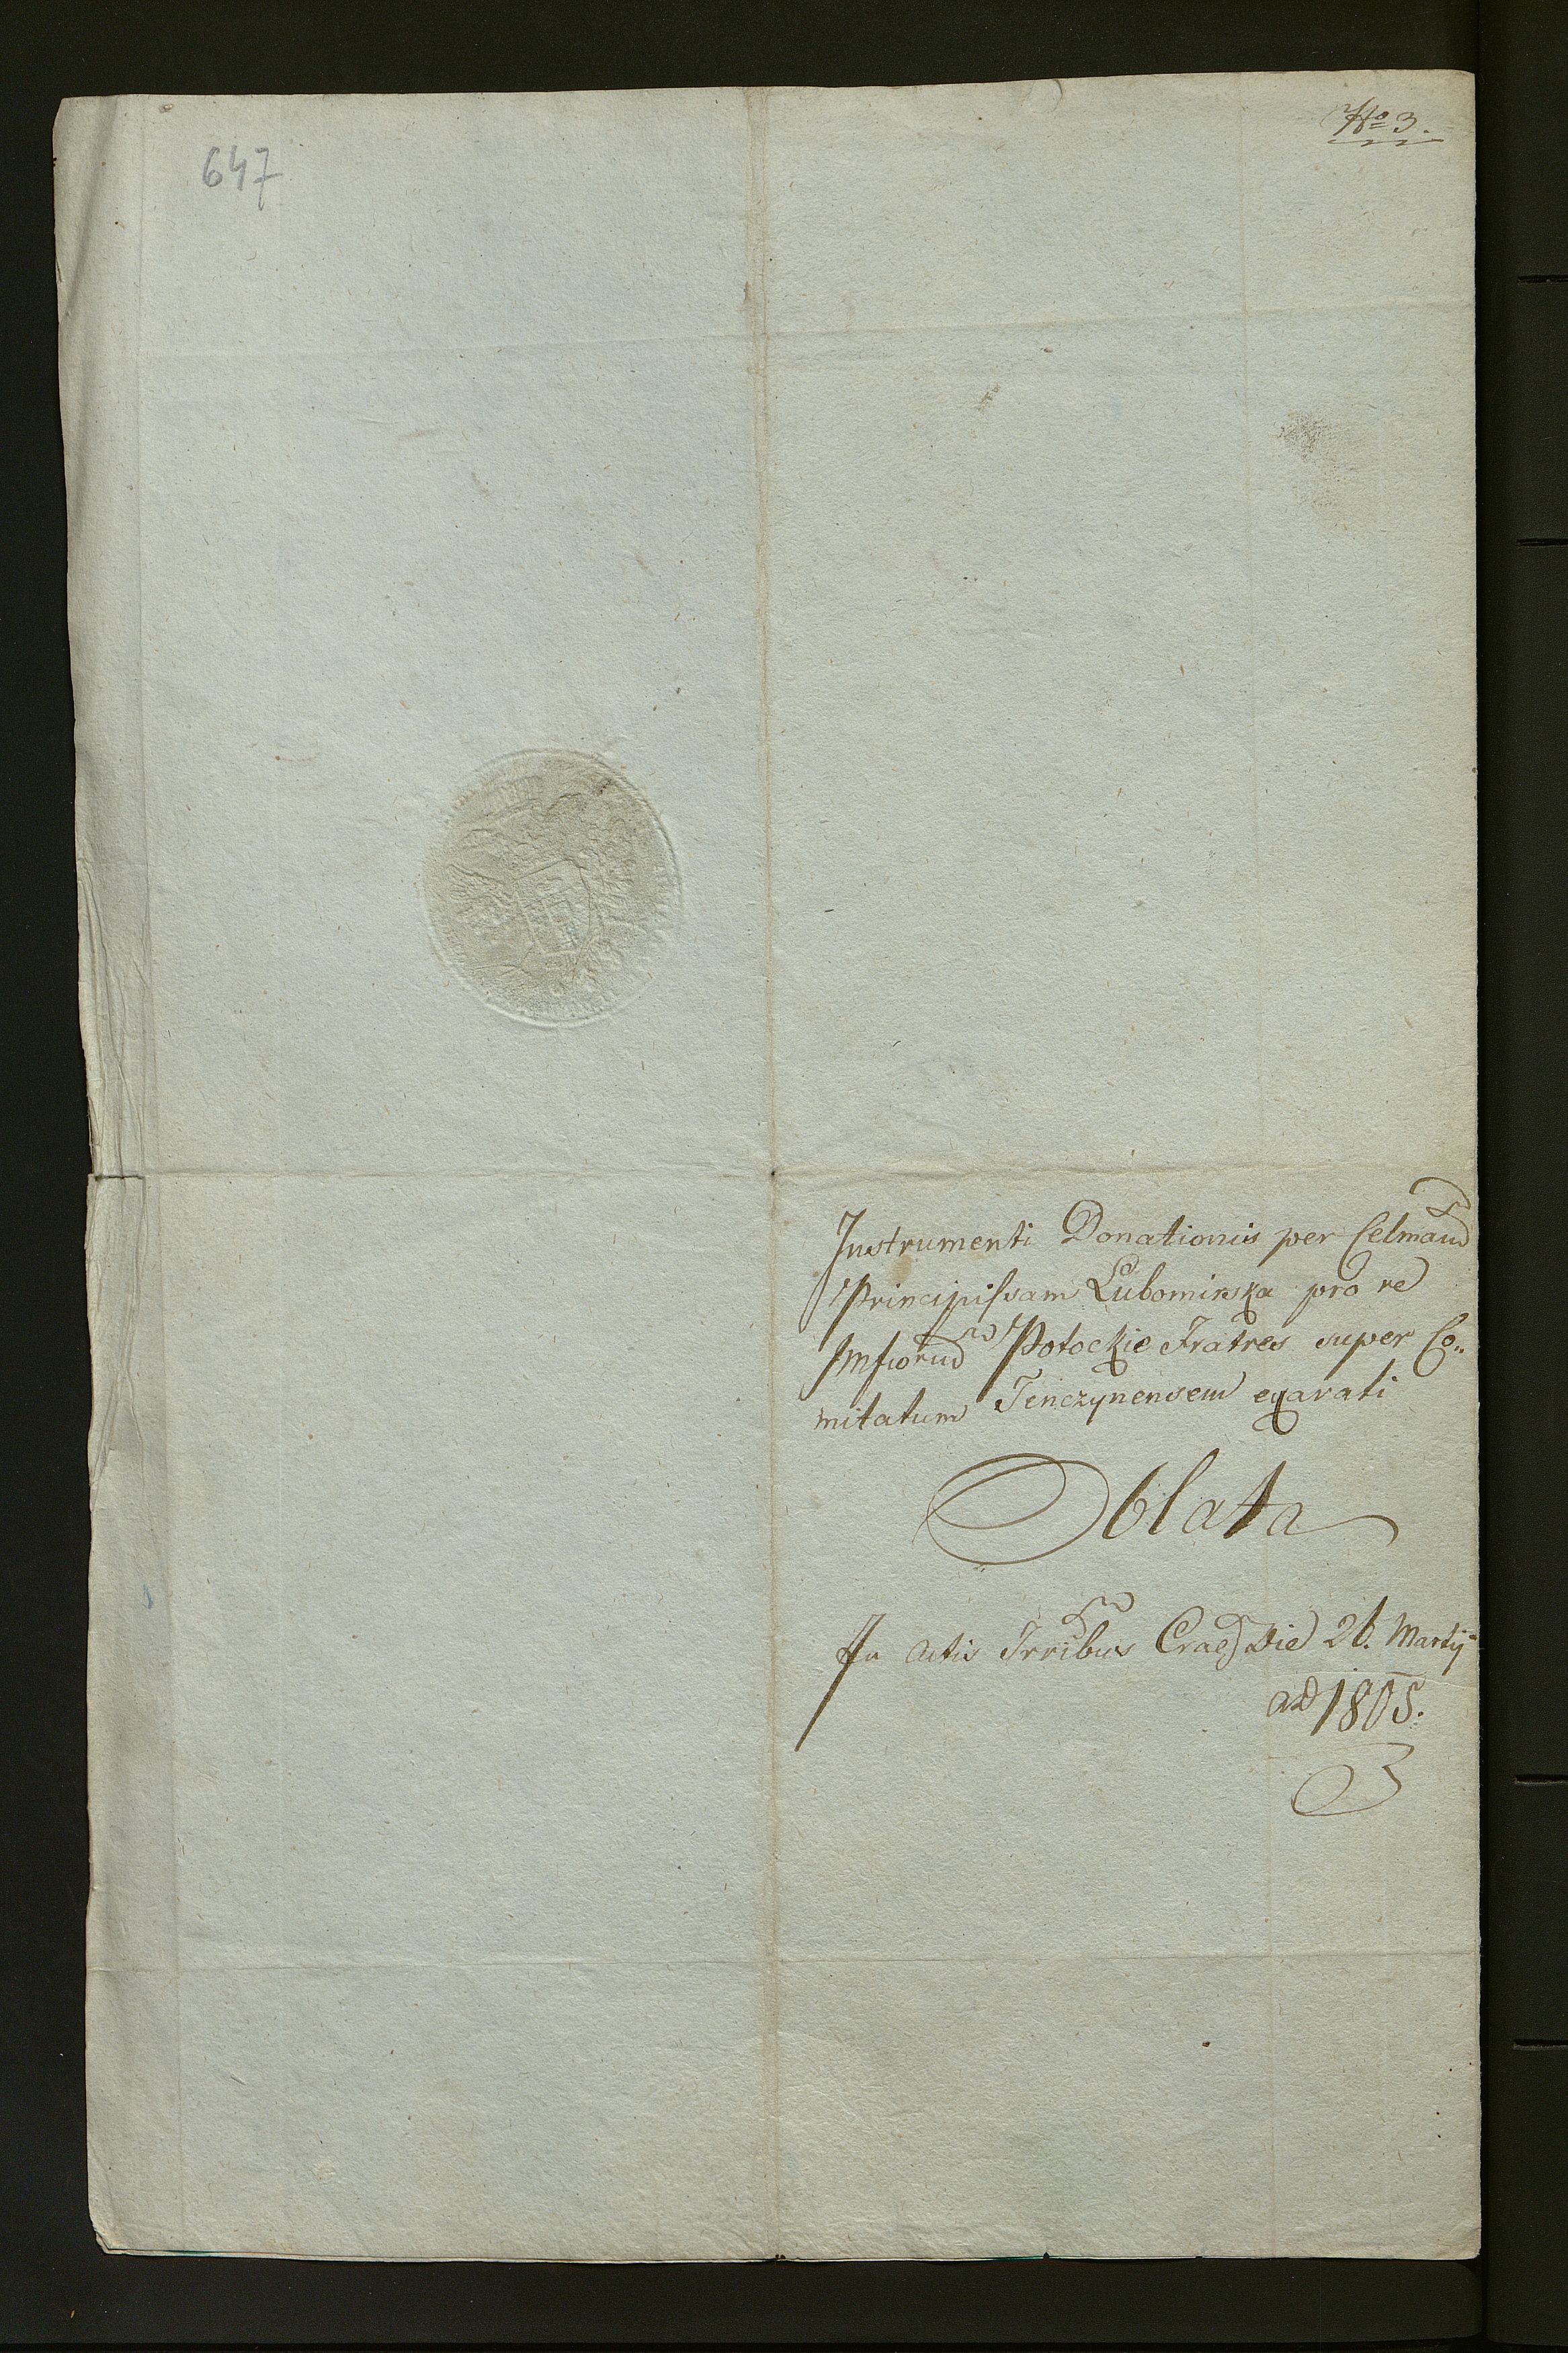 No 3.
647
Instrumenti Donationis per Celmam
Principissam Lubomirska pro re
Potockie Fratres super Co„
mitatum Tenczynensem exarati
Oblata
In Actis Trribus Crac Die 26. Martij
ao 1805.